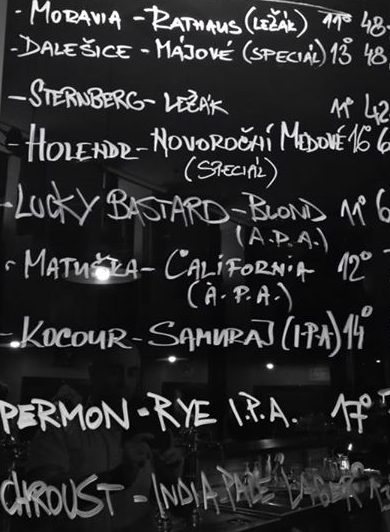 - MORAVIA - RATHAUS (LEŽÁK) 11° 48-
- DALEŠICE - MÁJOVÉ (SPECIÁL) 13° 48,
- STERNBERG - LEŽÁK 11° 42
- HOLENDR - NOVOROČNÍ MEDOVÉ 16° 6
(SPECIÁL)
- LUCKY BASTARD - BLOND 11° 6
(A.P.A.)
- MATUŠKA - CALIFORNIA 12°
(A.P.A.)
- KOCOUR - SAMURAJ (I.P.A) 14°
PERMON - RYE I.P.A. 17°
CHROUST - INDIA PALE LAGER